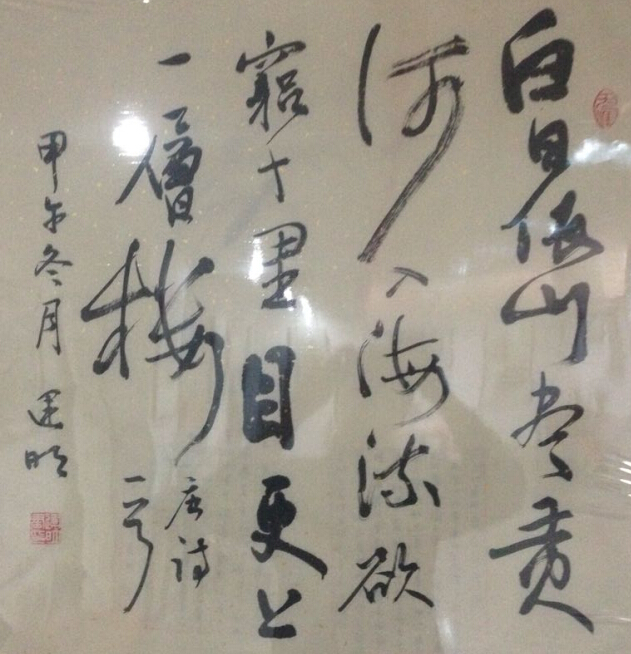 白日依山尽黄
河入海流欲
窮十里目更上
一層楼 唐诗一首
甲午冬月 建明